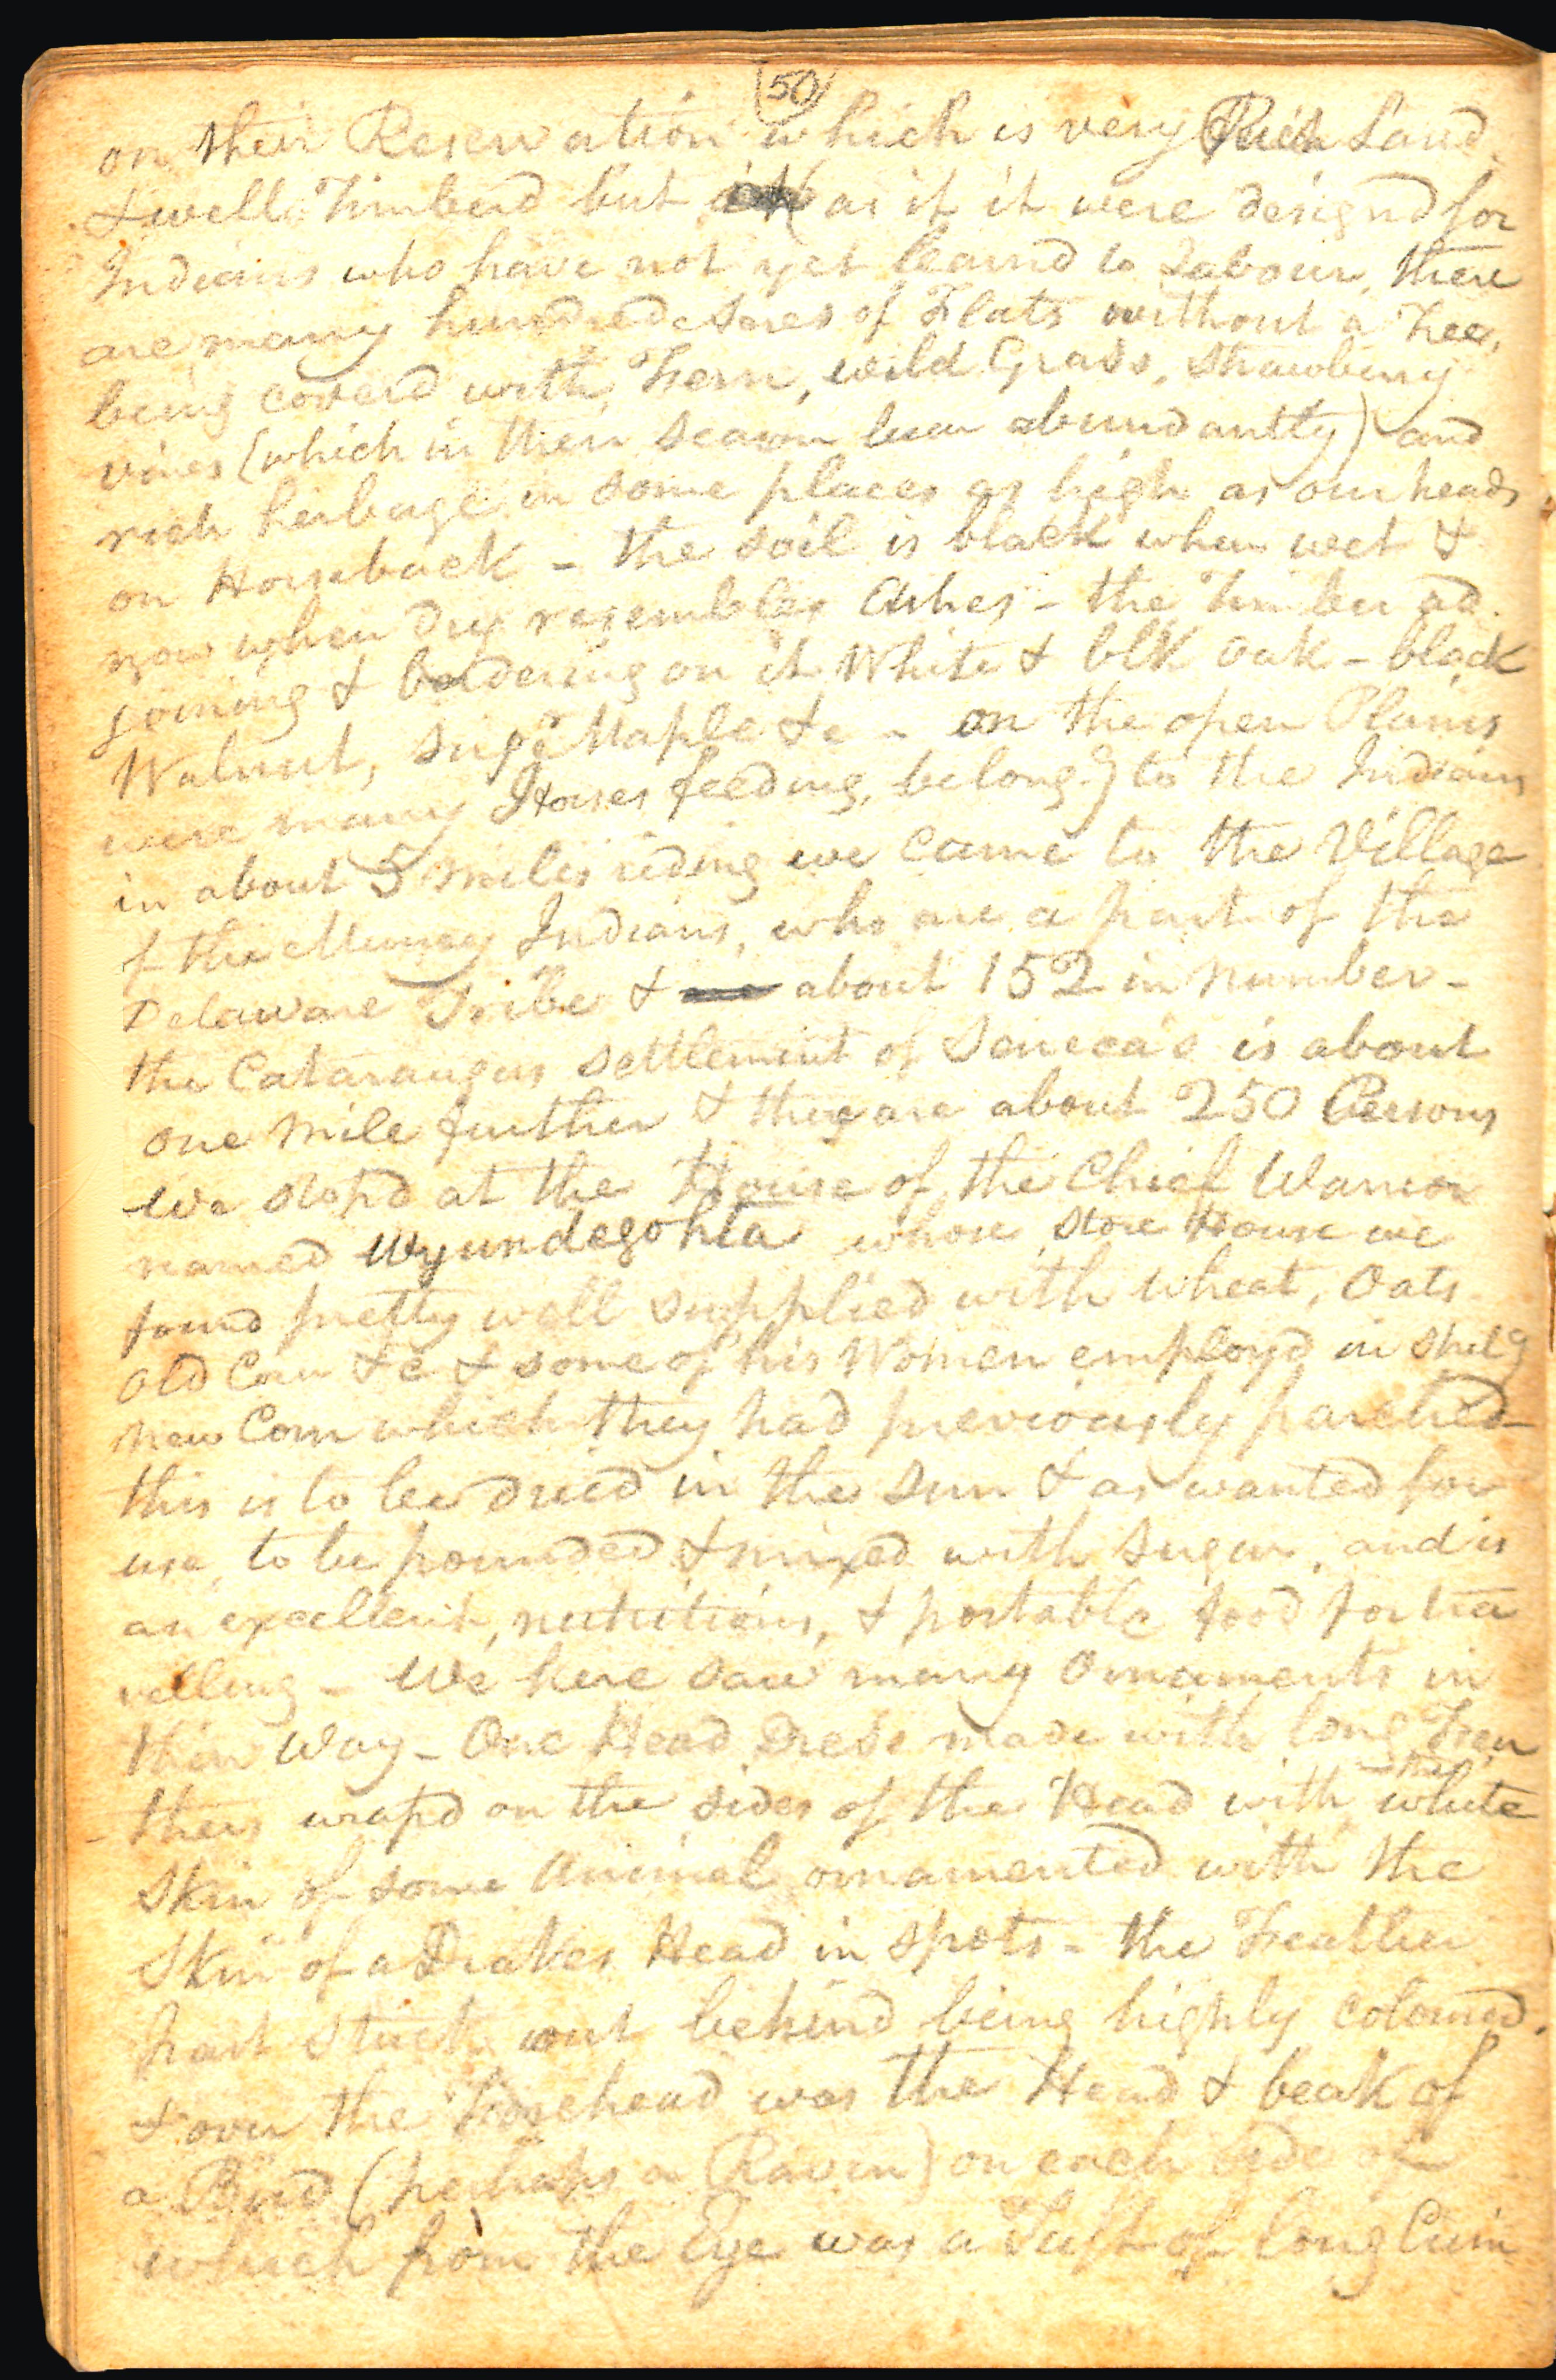 (50)
on their Reservation which is very Rich Land
& well Timberd but as if it were designd for
Indians who have not yet learnd to Labour, there
are many hundred Acres of Flats without a Tree,
being coverd with Fern, wild Grass, Strawberry
vines (which in their season bear abundantly) and
rich herbage in some places as high as our heads
on Horseback - the soil is black when wet &
now when dry resembles Ashes - the Timber ad
joining & bordering on it White & blk oak - black
Walnut, Sugr Maple &c - on the open Plains
were many Horses feeding, belongg to the Indians
in about 5 miles riding we came to the Village
of the Munsey Indians, who are a part of the
Delaware Tribe & about 152 in number -
the Cataraugus settlement of Seneca's is about
one mile further & they are about 250 Persons
We stopd at the House of the Chief Warrior
named Wyundegohta whose Store House we
found pretty well supplied with Wheat, Oats
old Corn &c & some of his Women employd in shelg
new Corn which they had previously parched
this is to be dried in the Sun & as wanted for
use, to be pounded & mixed with Sugar, and is
an excellent, nutritious, & portable food for tra
velling - We here saw many Ornaments in
their Way - One Head Dress made with long Fea
thers wrapd on the sides of the Head with the white
Skin of some Animal ornamented with the
Skin of a Drakes Head in spots - the Feather
part stuck out behind being highly colourd,
& over the Forehead was the Head & beak of
a Bird (perhaps a Raven) on each side of
which from the Eye was a Tuft of long Crim